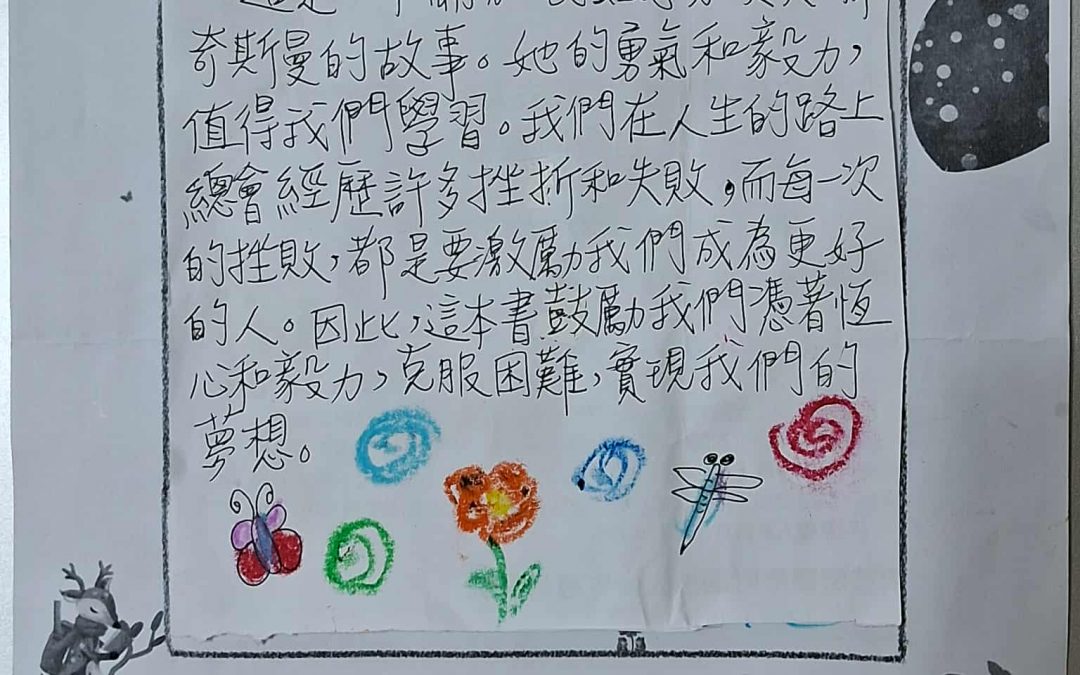 奇斯曼的故事。她的勇氣和毅力，
值得我們學習。我們在人生的路上
總會經歷許多挫折和失敗，而每一次
的挫敗，都是要激勵我們成為更好
的人。因此，這本書鼓勵我們憑著恆
心和毅力，克服困難，實現我們的
夢想。